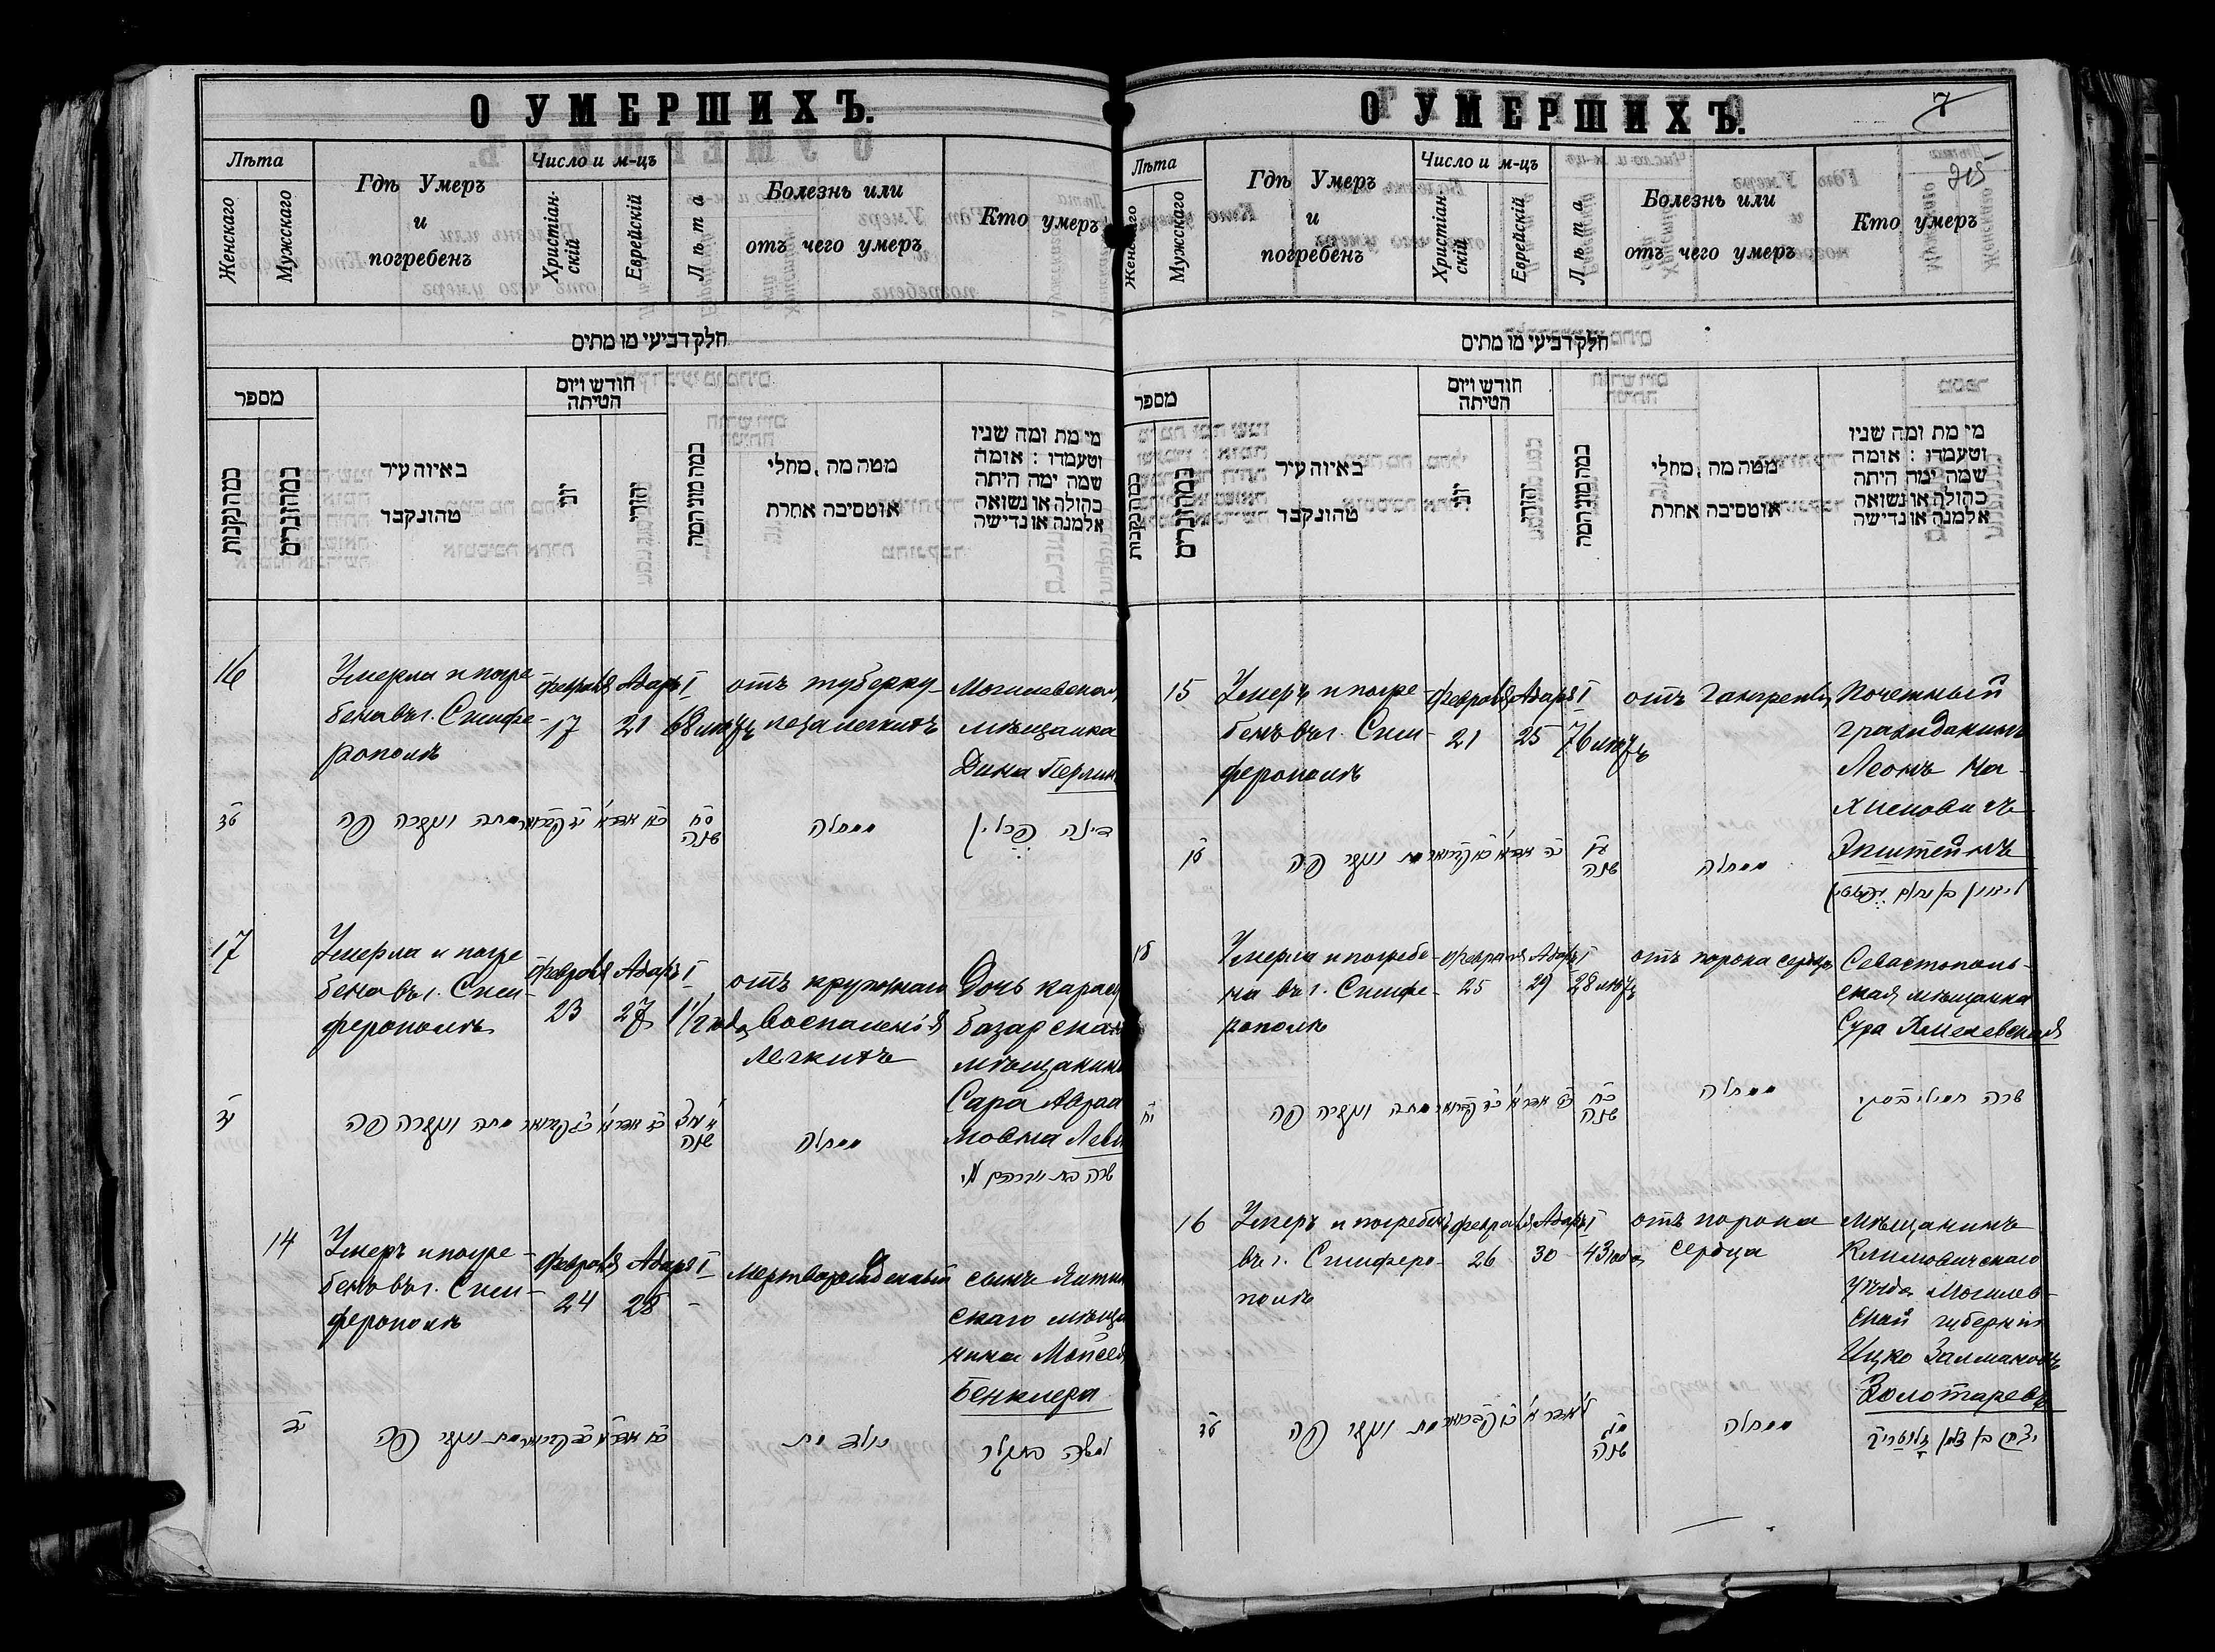 О УМЕРШИХЪ.
Лѣта
Женскаго
Мужскаго
Гдѣ Умеръ
и
погребенъ
Число и м-цъ
Христіан-
скій
Еврейскій
Лѣта
Болезнь или
отъ чего умеръ
Кто умеръ
חלק רביעי מו מתים
מספר
כמהנקבות
כמהזכרים
באיזה עיר
מהונקבר
חודש ויום
המיתה
יוני
יהודי
כמה שני המת
ממה מת, מחלי
או מסיבה אחרת
מי מת ומה שניו
ומעמדו: אומה
שמה ימה היתה
בתולה או נשואה
אלמנה או גרושה
16
Умерла и погре
бена въ г. Симфе-
рополѣ
Февраля
17
Адаръ I
21
68 лѣтъ
отъ туберку-
леза легкихъ
Могилевская
мѣщанка
Дина Перлинъ
מתה ונקברה פה
סח
שנה
מחלה
דינה פרלין
17
Умерла и погре
бена въ г. Сим-
ферополѣ
Февраля
23
Адаръ I
27
1 1/2 года
отъ крупознаго
воспаленія
легкихъ
Дочь карасу
базарскаго
мѣщанина
Сара Авраа
мовна Леви
מתה ונקברה פה
שנה
מחלה
שרה בת אברהם לוי
14
Умеръ и погре-
бенъ въ г. Сим-
ферополѣ
Февраля
24
Адаръ I
28
-
Мертворожденный
сынъ
скаго мѣща
нина Моисея
Бенклера
מת ונקבר פה
נולד מת
О УМЕРШИХЪ.
7
205
Лѣта
Женскаго
Мужскаго
Гдѣ Умеръ
и
погребенъ
Число и м-цъ
Христіан-
скій
Еврейскій
Лѣта
Болезнь или
отъ чего умеръ
Кто умеръ
חלק רביעי מו מתים
מספר
כמהנקבות
כמהזכרים
באיזה עיר
מהונקבר
חודש ויום
המיתה
יוני
יהודי
כמה שני המת
ממה מת, מחלי
או מסיבה אחרת
מי מת ומה שניו
ומעמדו: אומה
שמה ימה היתה
בתולה או נשואה
אלמנה או גרושה
15
Умеръ и погре
бенъ въ г. Сим-
ферополѣ
Февраля
21
Адаръ I
25
76 лѣтъ
отъ гангрены
Почетный
гражданинъ
Леонъ На-
химовичъ
Эпштейнъ
מת ונקבר פה
עו
שנה
מחלה
18
Умерла и погребе-
на въ г. Симфе-
рополѣ
Февраля
25
Адаръ I
29
28 лѣтъ
отъ порока сердца
Севастополь-
ская мѣщанка
Сура Хмелевская
מתה ונקברה פה
כח
שנה
מחלה
16
Умеръ и погребенъ
въ г. Симферо-
полѣ
Февраля
26
Адаръ I
30
43 года
отъ порока
сердца
Мѣщанинъ
Климовичскаго
уѣзда Могилев-
ской губерніи
Ицко Залмановъ
Золотаревъ
מת ונקבר פה
מג
שנה
מחלה